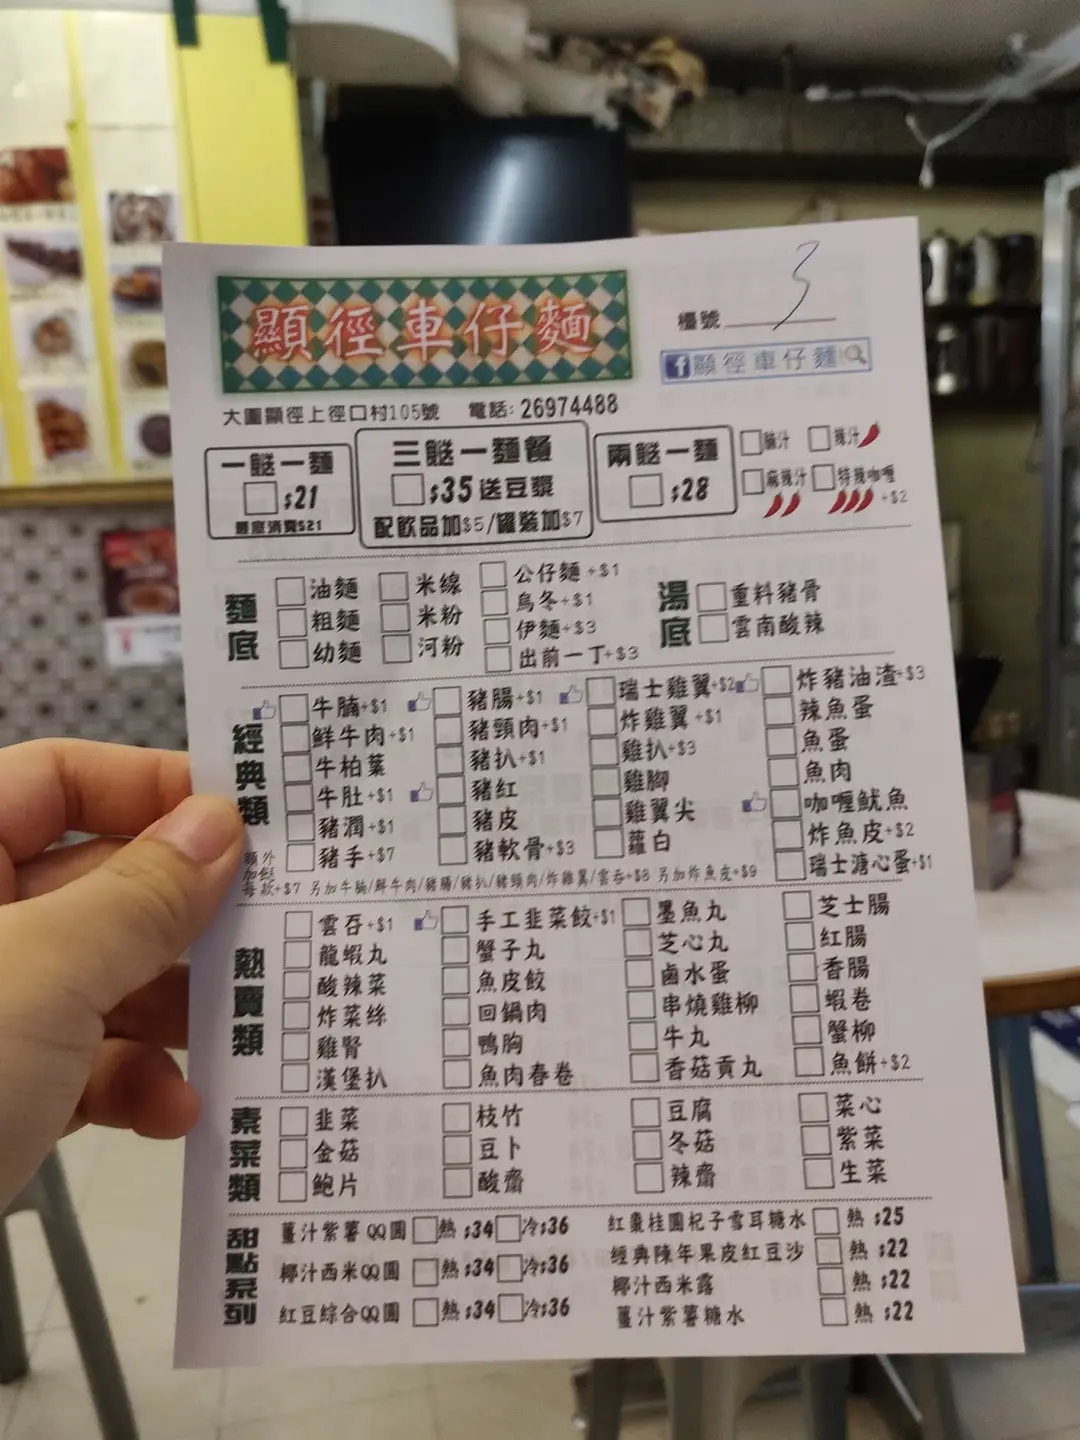 顯徑車仔麵
檯號 3
顯徑車仔麵
大圍顯徑上徑口村105號 電話: 26974488
一餸一麵 $21
最底消費$21
三餸一麵餐 $35送豆漿
配飲品加$5/罐裝加$7
兩餸一麵 $28
腩汁 辣汁
麻辣汁 特辣咖喱+$2
麵底
油麵 米線 公仔麵+$1
粗麵 米粉 烏冬+$1
幼麵 河粉 伊麵+$3
出前一丁+$3
湯底
重料豬骨
雲南酸辣
經典類
牛腩+$1 豬腸+$1 瑞士雞翼+$2 炸豬油渣+$3
鮮牛肉+$1 豬頸肉+$1 炸雞翼+$1 辣魚蛋
牛柏葉 豬扒+$1 雞扒+$3 魚蛋
牛肚+$1 豬紅 雞腳 魚肉
豬潤+$1 豬皮 雞翼尖 咖喱魷魚
豬手+$7 豬軟骨+$3 蘿白 炸魚皮+$2
瑞士溏心蛋+$1
額外加餸每款+$7 另加牛腩/鮮牛肉/豬腸/豬扒/豬頸肉/炸雞翼/雲吞+$8 另加炸魚皮+$9
熱賣類
雲吞+$1 手工韭菜餃+$1 墨魚丸 芝士腸
龍蝦丸 蟹子丸 芝心丸 紅腸
酸辣菜 魚皮餃 鹵水蛋 香腸
炸菜絲 回鍋肉 串燒雞柳 蝦卷
雞腎 鴨胸 牛丸 蟹柳
漢堡扒 魚肉春卷 香菇貢丸 魚餅+$2
素菜類
韭菜 枝竹 豆腐 菜心
金菇 豆卜 冬菇 紫菜
鮑片 酸齋 辣齋 生菜
甜點系列
薑汁紫薯QQ圓 熱$34 冷$36 紅棗桂圓杞子雪耳糖水 熱$25
椰汁西米QQ圓 熱$34 冷$36 經典陳年果皮紅豆沙 熱$22
紅豆綜合QQ圓 熱$34 冷$36 椰汁西米露 熱$22
薑汁紫薯糖水 熱$22